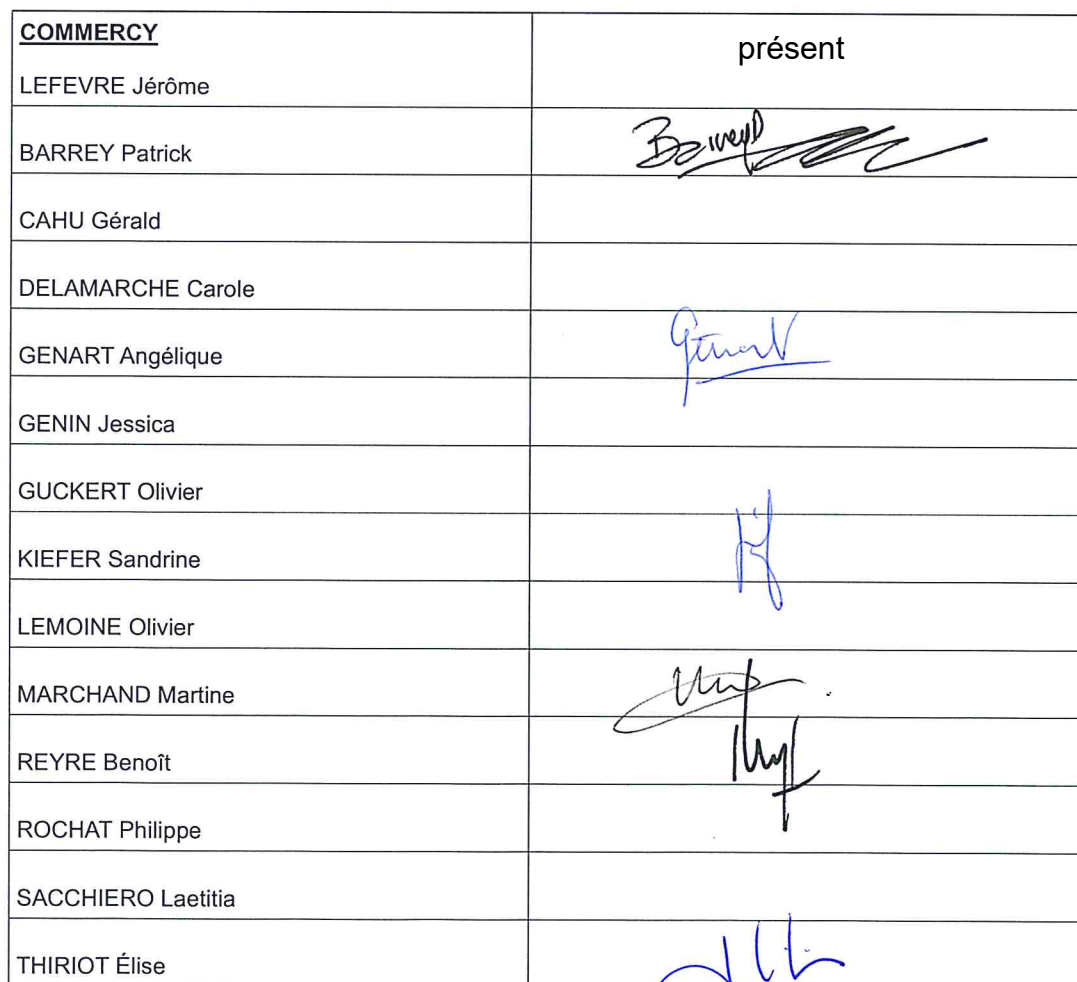 COMMERCY
présent
LEFEVRE Jérôme
BARREY Patrick
CAHU Gérald
DELAMARCHE Carole
GENART Angélique
GENIN Jessica
GUCKERT Olivier
KIEFER Sandrine
LEMOINE Olivier
MARCHAND Martine
REYRE Benoît
ROCHAT Philippe
SACCHIERO Laetitia
THIRIOT Élise